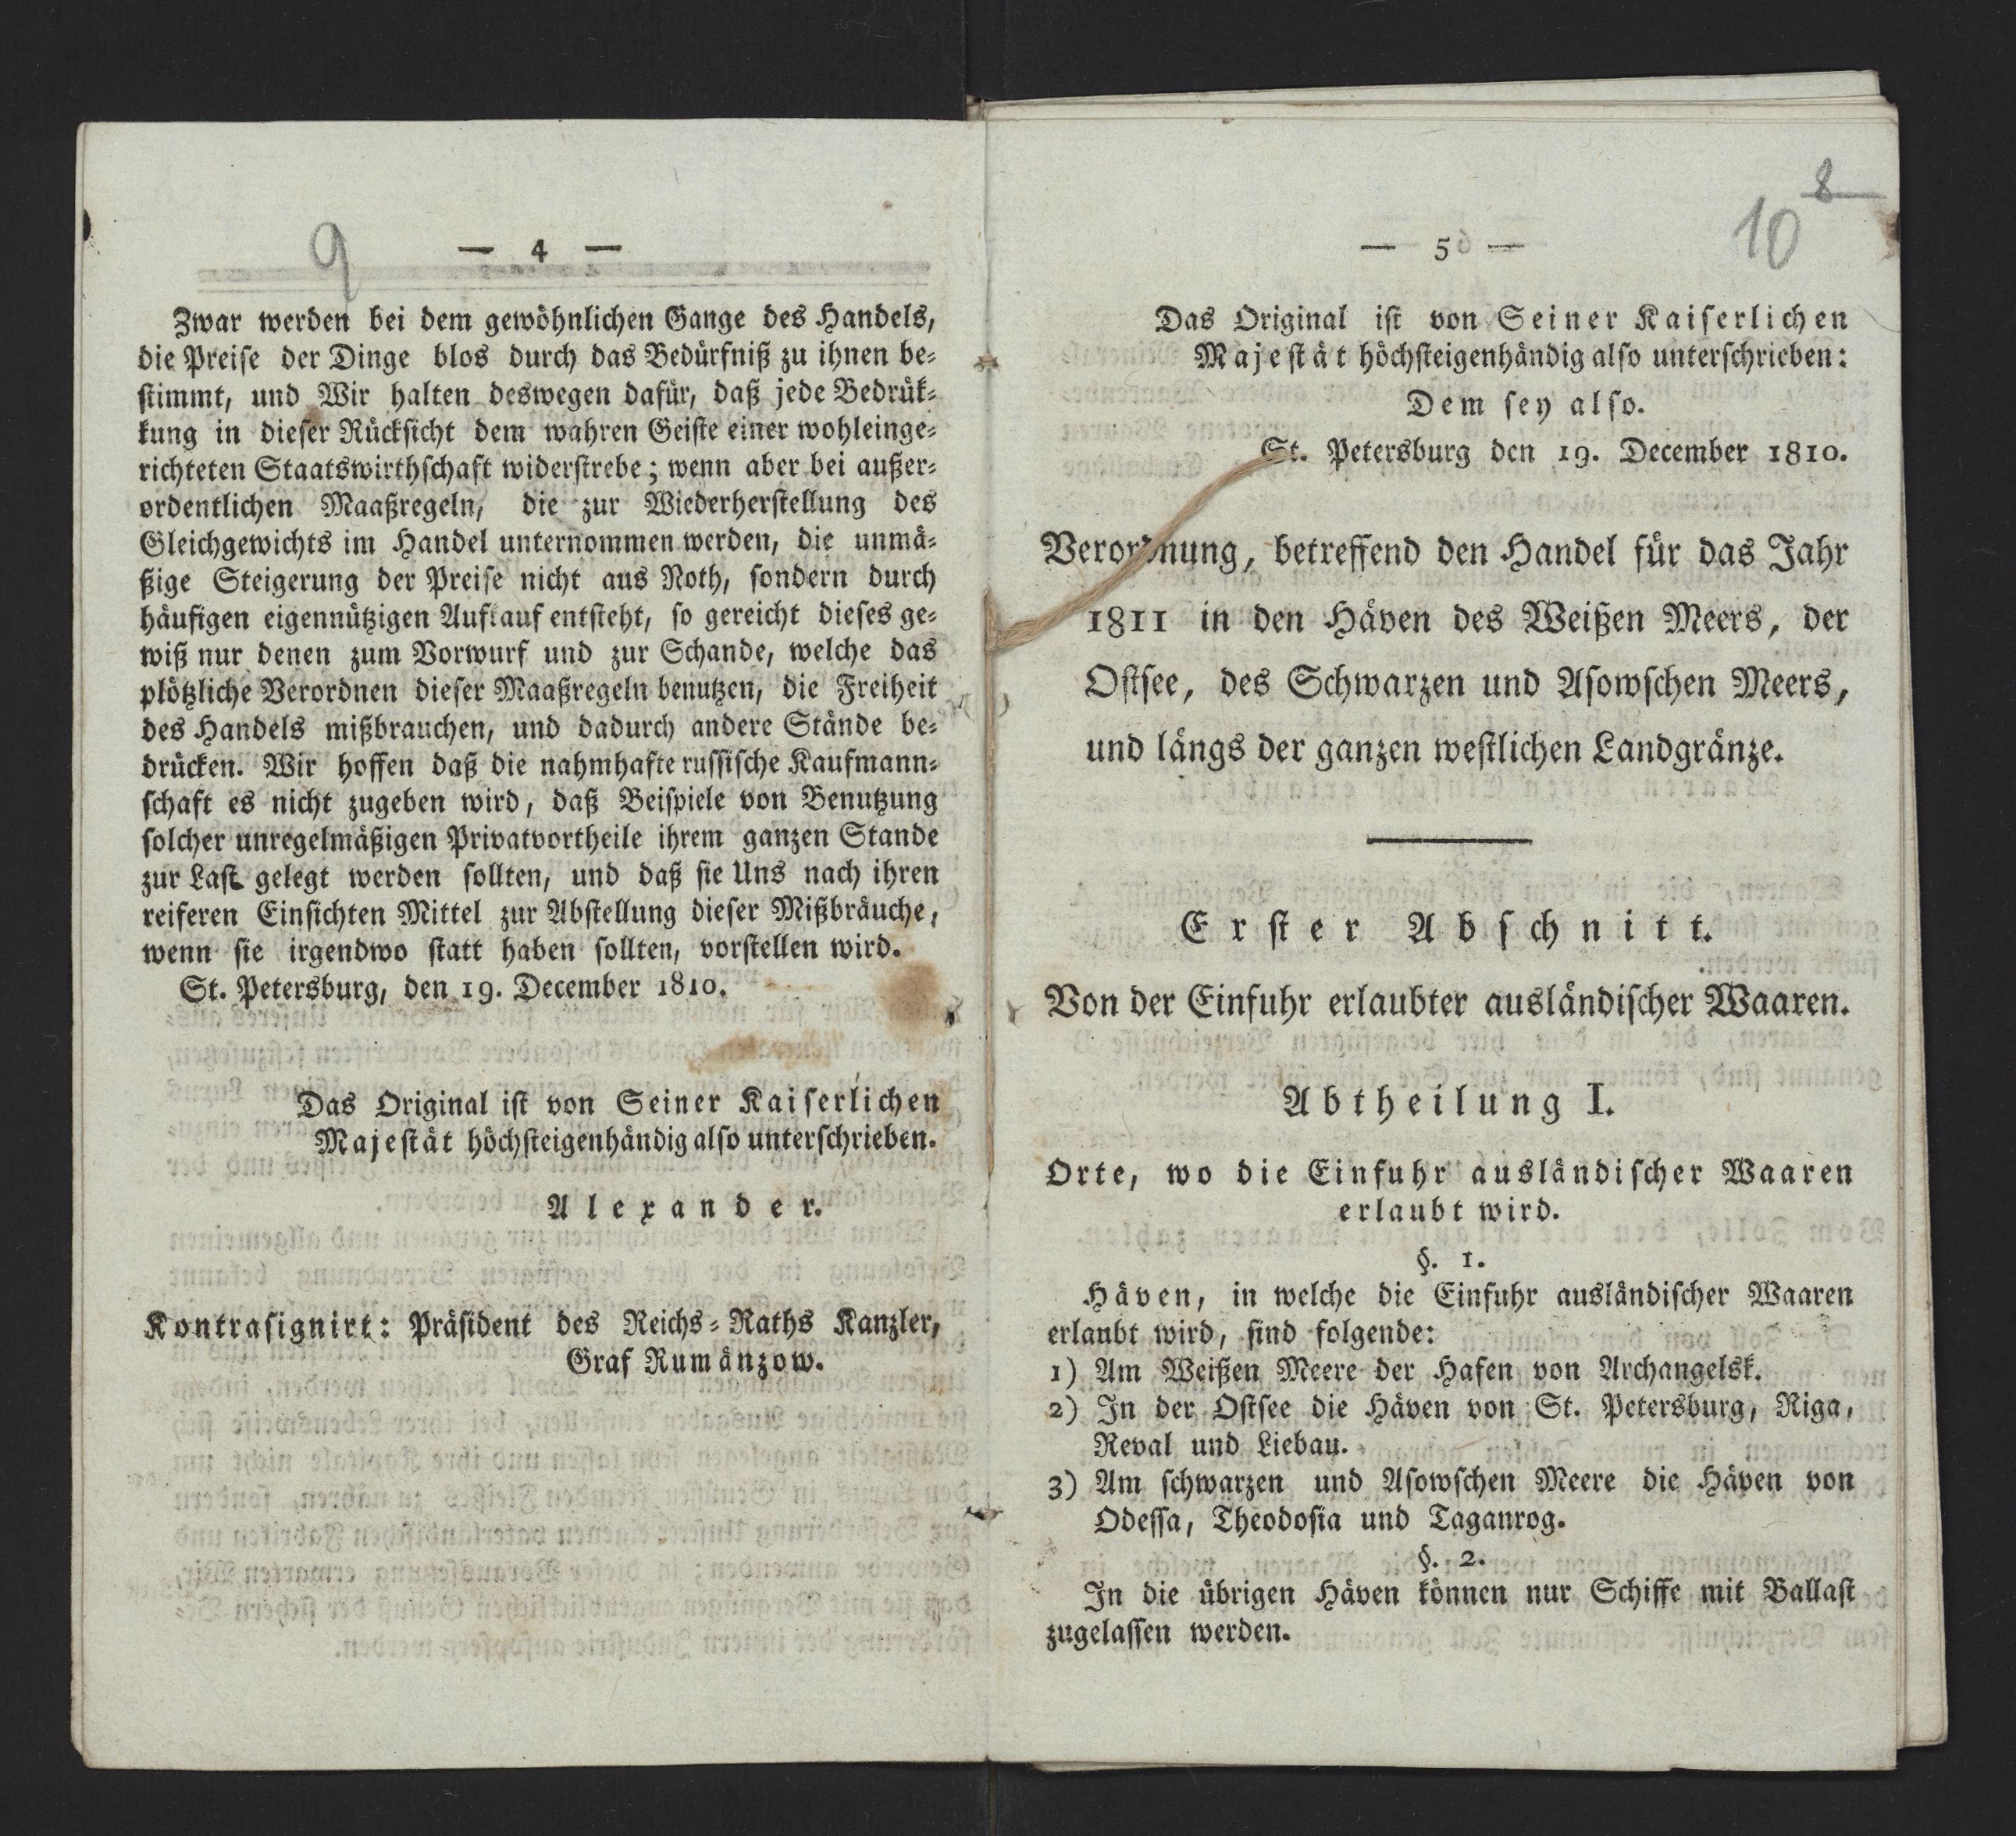 9
— 4 —
Zwar werden bei dem gewöhnlichen Gange des Handels,
die Preise der Dinge blos durch das Bedürfniß zu ihnen be-
stimmt, und Wir halten deswegen dafür, daß jede Bedrük-
kung in dieser Rücksicht dem wahren Geiste einer wohleinge-
richteten Staatswirthschaft widerstrebe; wenn aber bei außer-
ordentlichen Maaßregeln, die zur Wiederherstellung des
Gleichgewichts im Handel unternommen werden, die unmä-
ßige Steigerung der Preise nicht aus Noth, sondern durch
häufigen eigennützigen Aufkauf entsteht, so gereicht dieses ge-
wiß nur denen zum Vorwurf und zur Schande, welche das
plötzliche Verordnen dieser Maaßregeln benutzen, die Freiheit
des Handels mißbrauchen, und dadurch andere Stände be-
drücken. Wir hoffen daß die nahmhafte russische Kaufmann-
schaft es nicht zugeben wird, daß Beispiele von Benutzung
solcher unregelmäßigen Privatvortheile ihrem ganzen Stande
zur Last gelegt werden sollten, und daß sie Uns nach ihren
reiferen Einsichten Mittel zur Abstellung dieser Mißbräuche,
wenn sie irgendwo statt haben sollten, vorstellen wird.
St. Petersburg, den 19. December 1810.
Das Original ist von Seiner Kaiserlichen
Majestät höchsteigenhändig also unterschrieben.
Alexander.
Kontrasignirt: Präsident des Reichs-Raths Kanzler,
Graf Rumänzow.
8
10
— 5 —
Das Original ist von Seiner Kaiserlichen
Majestät höchsteigenhändig also unterschrieben:
Dem sey also.
St. Petersburg den 19. December 1810.
Verordnung, betreffend den Handel für das Jahr
1811 in den Häven des Weißen Meers, der
Ostsee, des Schwarzen und Asowschen Meers,
und längs der ganzen westlichen Landgränze.
Erster Abschnitt.
Von der Einfuhr erlaubter ausländischer Waaren.
Abtheilung I.
Orte, wo die Einfuhr ausländischer Waaren
erlaubt wird.
§. 1.
Häven, in welche die Einfuhr ausländischer Waaren
erlaubt wird, sind folgende:
1) Am Weißen Meere der Hafen von Archangelsk.
2) In der Ostsee die Häven von St. Petersburg, Riga,
Reval und Liebau.
3) Am schwarzen und Asowschen Meere die Häven von
Odessa, Theodosia und Taganrog.
§. 2.
In die übrigen Häven können nur Schiffe mit Ballast
zugelassen werden.